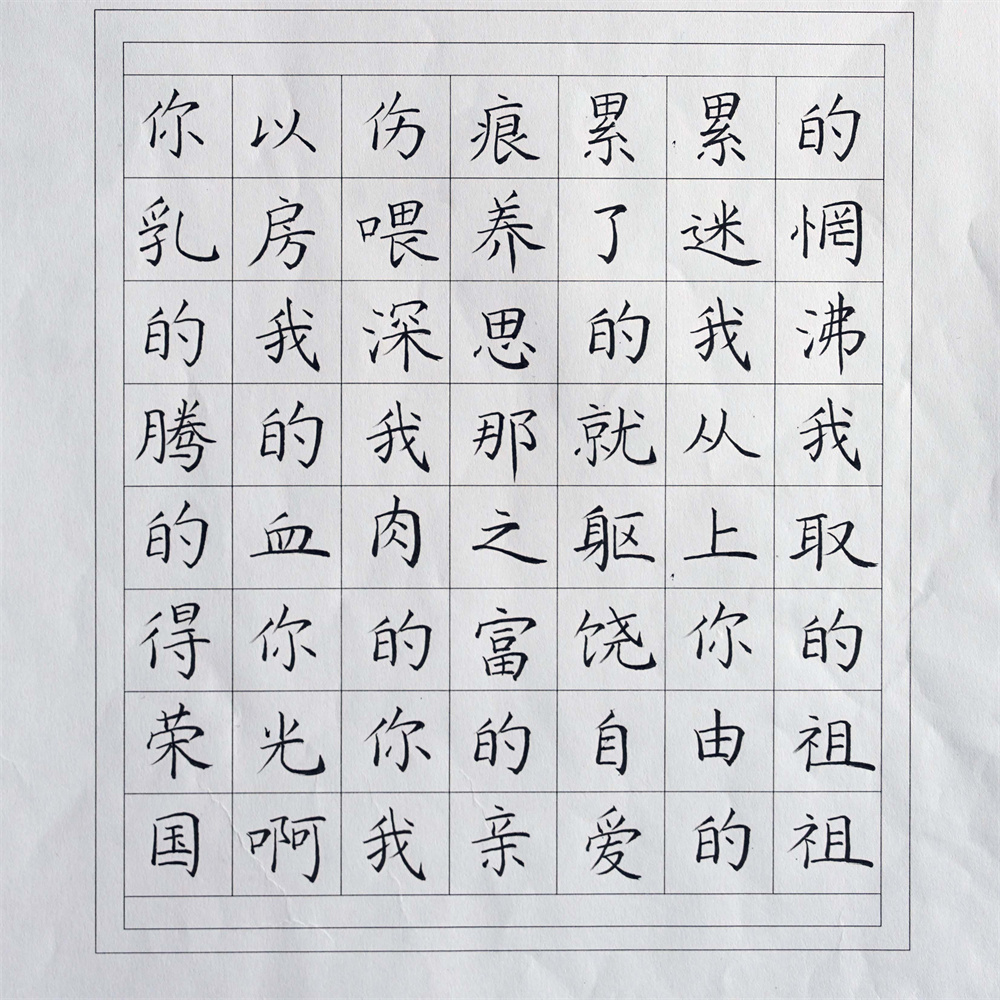 你以伤痕累累的
乳房喂养了迷惘
的我深思的我沸
腾的我那就从我
的血肉之躯上取
得你的富饶你的
荣光你的自由祖
国啊我亲爱的祖